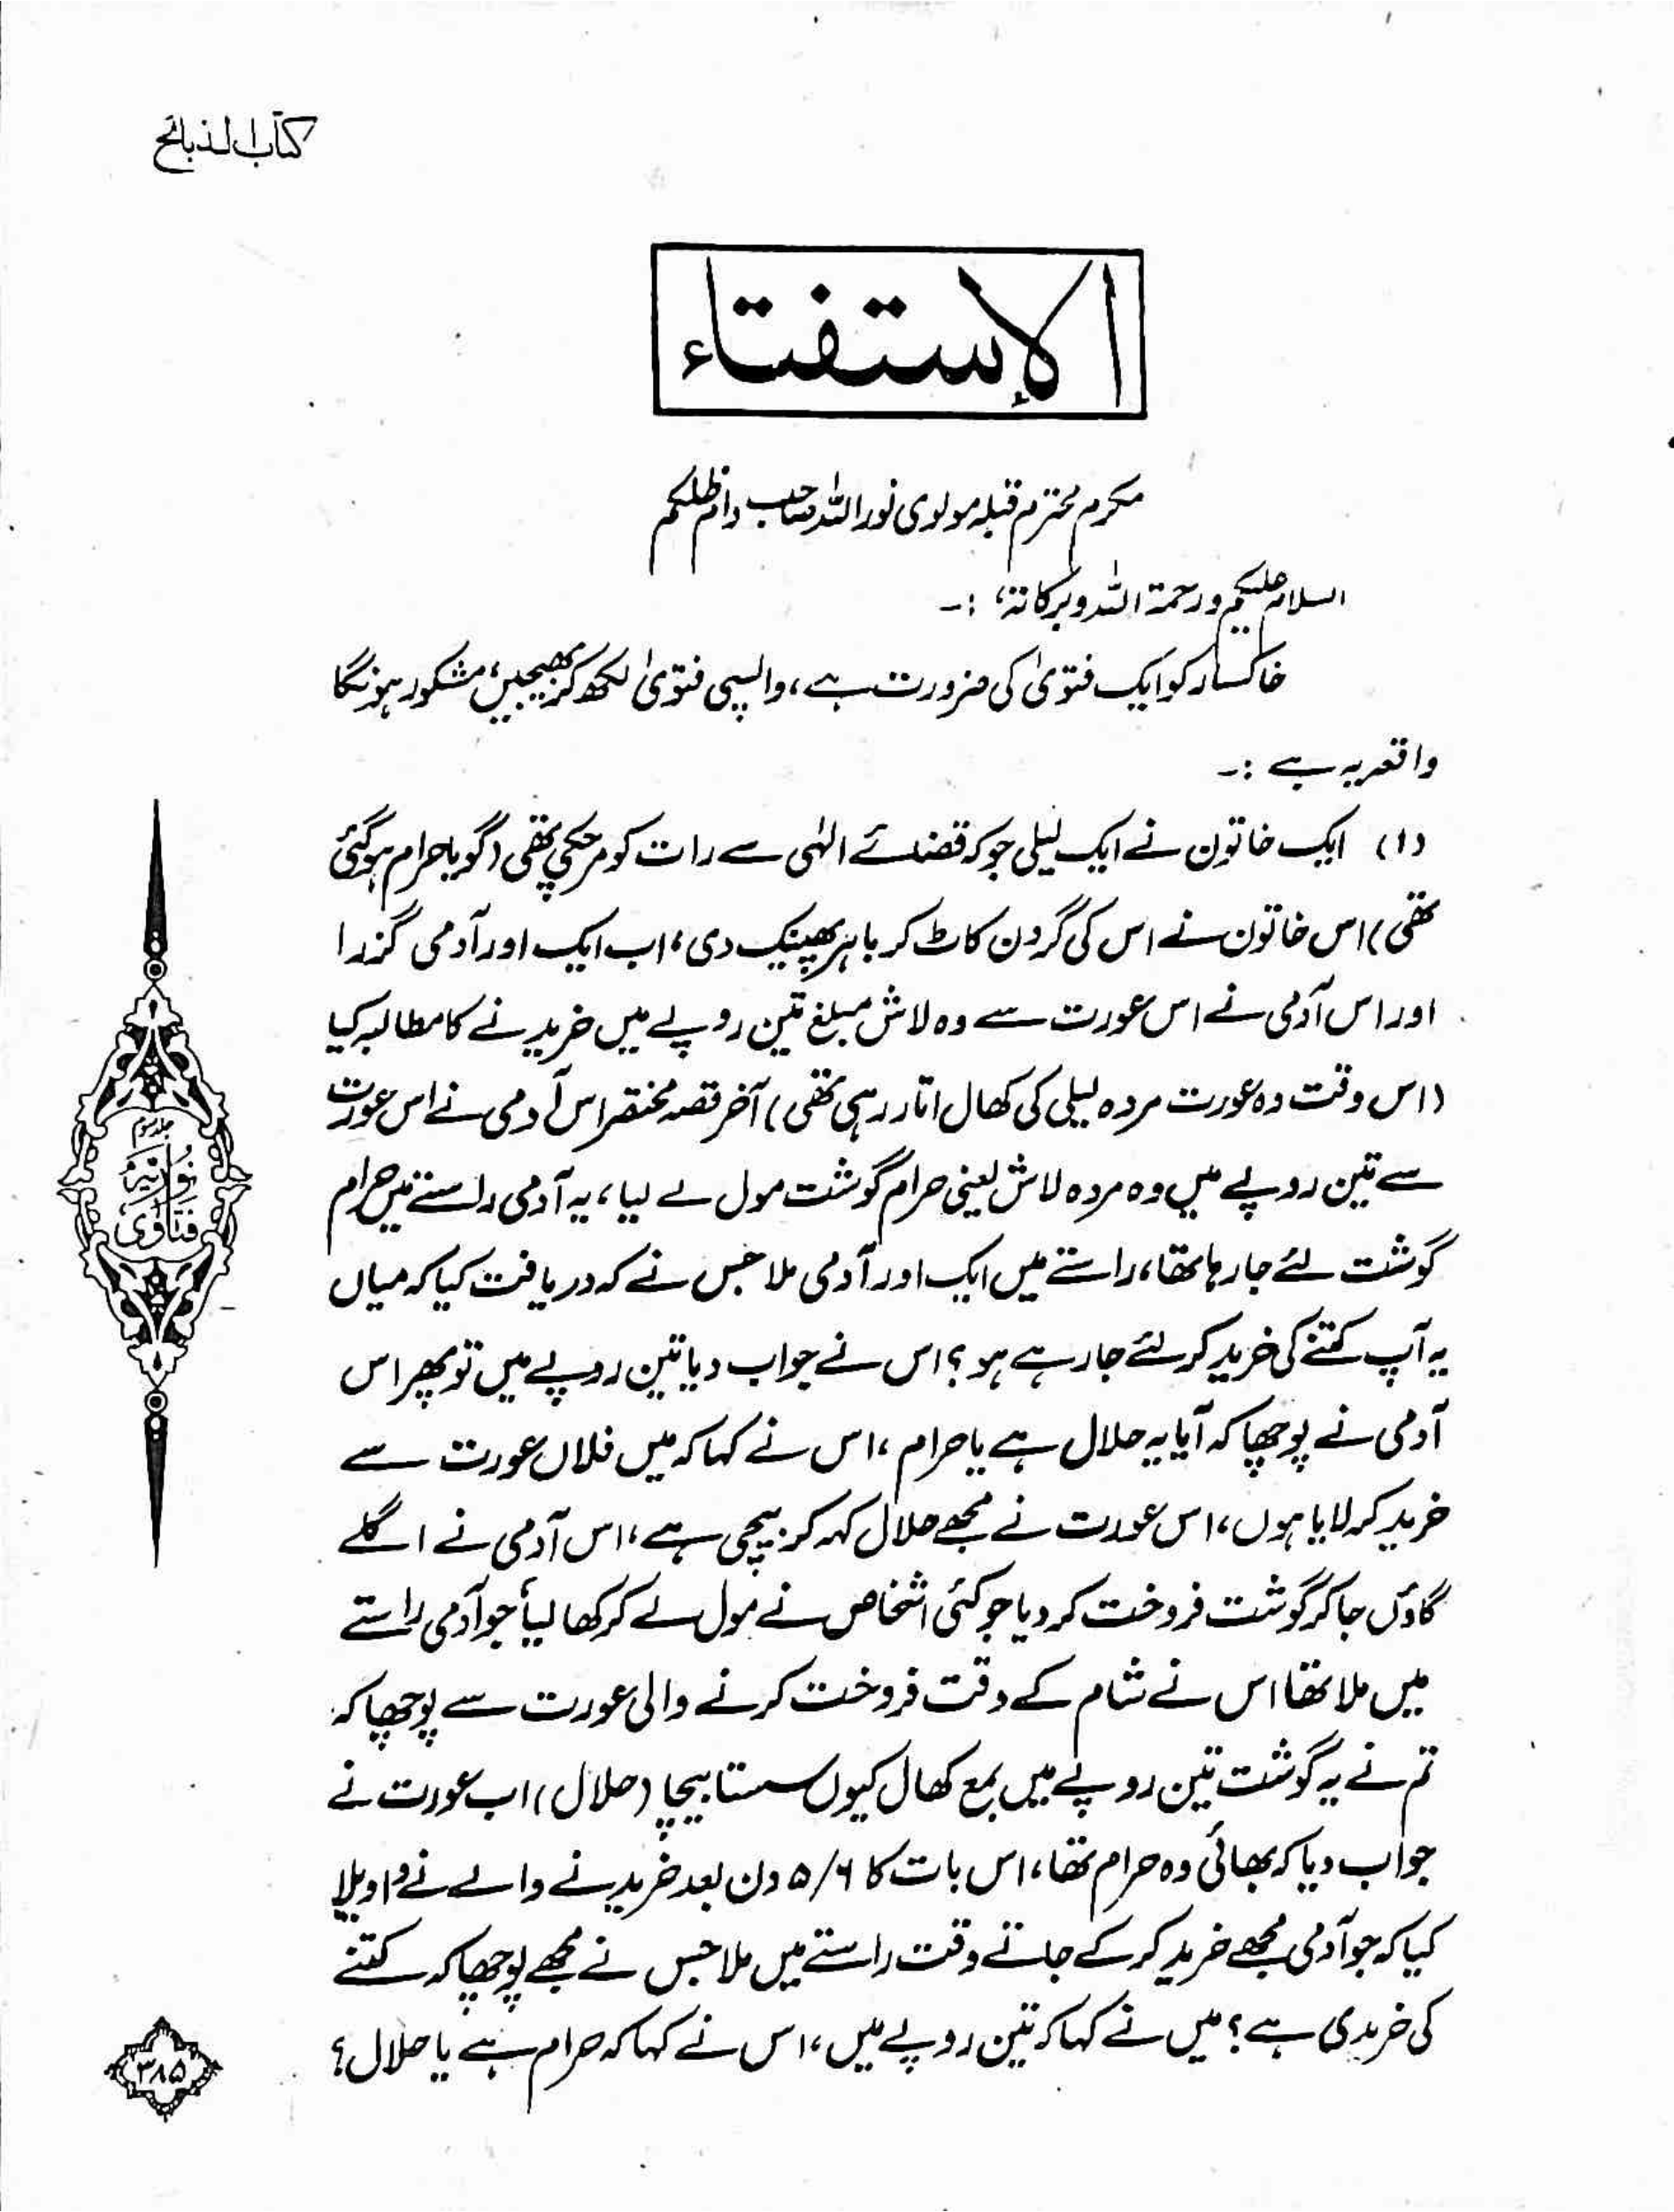 کتاب الذبائح
الإستفتاء
مکرم محترم قبلہ مولوی نور اللہ صاحب دام ظلکم
السلام علیکم ورحمۃ اللہ وبرکاتہٗ :۔
خاکسار کو ایک فتویٰ کی ضرورت ہے، واپسی فتویٰ لکھ کر بھیجیں، مشکور ہونگا
واقعہ یہ ہے :۔
(۱) ایک خاتون نے ایک لیلی جو کہ قضائے الٰہی سے رات کو مر چکی تھی (گویا حرام ہوگئی
تھی) اس خاتون نے اس کی گردن کاٹ کر باہر پھینک دی، اب ایک اور آدمی گزرا
اور اس آدمی نے اس عورت سے وہ لاش مبلغ تین روپے میں خریدنے کا مطالبہ کیا
(اس وقت وہ عورت مردہ لیلی کی کھال اتار رہی تھی) آخر قصہ مختصر اس آدمی نے اس عورت
سے تین روپے میں وہ مردہ لاش یعنی حرام گوشت مول لے لیا، یہ آدمی راستے میں حرام
گوشت لئے جا رہا تھا، راستے میں ایک اور آدمی ملا جس نے کہ دریافت کیا کہ میاں
یہ آپ کتنے کی خرید کر لئے جا رہے ہو؟ اس نے جواب دیا تین روپے میں تو پھر اس
آدمی نے پوچھا کہ آیا یہ حلال ہے یا حرام، اس نے کہا کہ میں فلاں عورت سے
خرید کر لایا ہوں، اس عورت نے مجھے حلال کہہ کر بیچی ہے، اس آدمی نے اگلے
گاؤں جا کر گوشت فروخت کر دیا جو کئی اشخاص نے مول لے کر کھا لیا، جو آدمی راستے
میں ملا تھا اس نے شام کے وقت فروخت کرنے والی عورت سے پوچھا کہ
تم نے یہ گوشت تین روپے میں بمع کھال کیوں سستا بیچا (حلال) اب عورت نے
جواب دیا کہ بھائی وہ حرام تھا، اس بات کا ۵/۶ دن بعد خریدنے والے نے واویلا
کیا کہ جو آدمی مجھے خرید کر کے جاتے وقت راستے میں ملا جس نے مجھے پوچھا کہ کتنے
کی خریدی ہے؟ میں نے کہا کہ تین روپے میں، اس نے کہا کہ حرام ہے یا حلال؟
جلد سوم
فتاویٰ نوریہ
۳۸۵